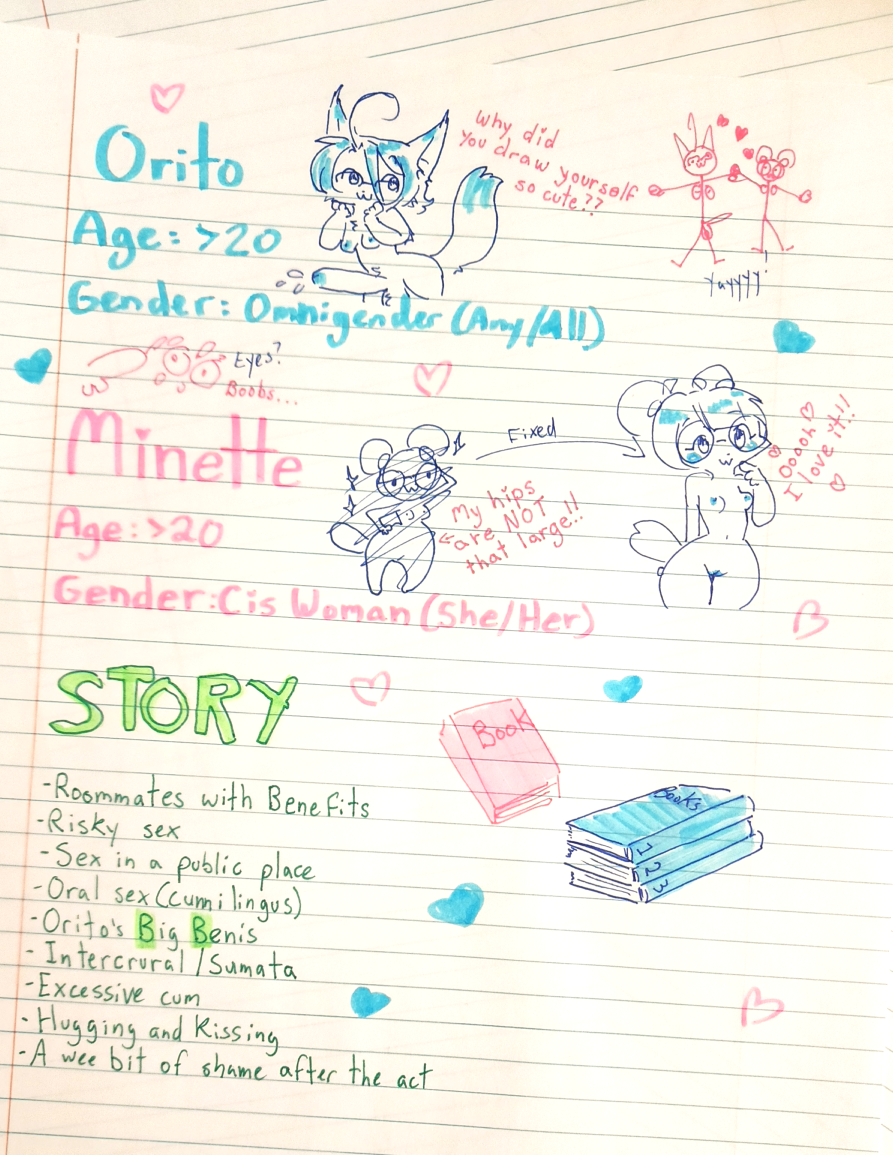 Orito
Why did
You draw yourself
so cute??
Age: >20
Yayyyy!
Gender: Omnigender (Any/All)
Eyes?
Boobs...
Minette
Fixed
Ooooh
I love it!!
My hips
are NOT
that large!!
Age: >20
Gender: Cis Woman (She/Her)
STORY
Book
Books
1
2
3
-Roommates with Benefits
-Risky sex
-Sex in a public place
-Oral sex (cumilingus)
-Orito's Big Benis
- Intercrural / Sumata
-Excessive cum
-Hugging and Kissing
-A wee bit of shame after the act